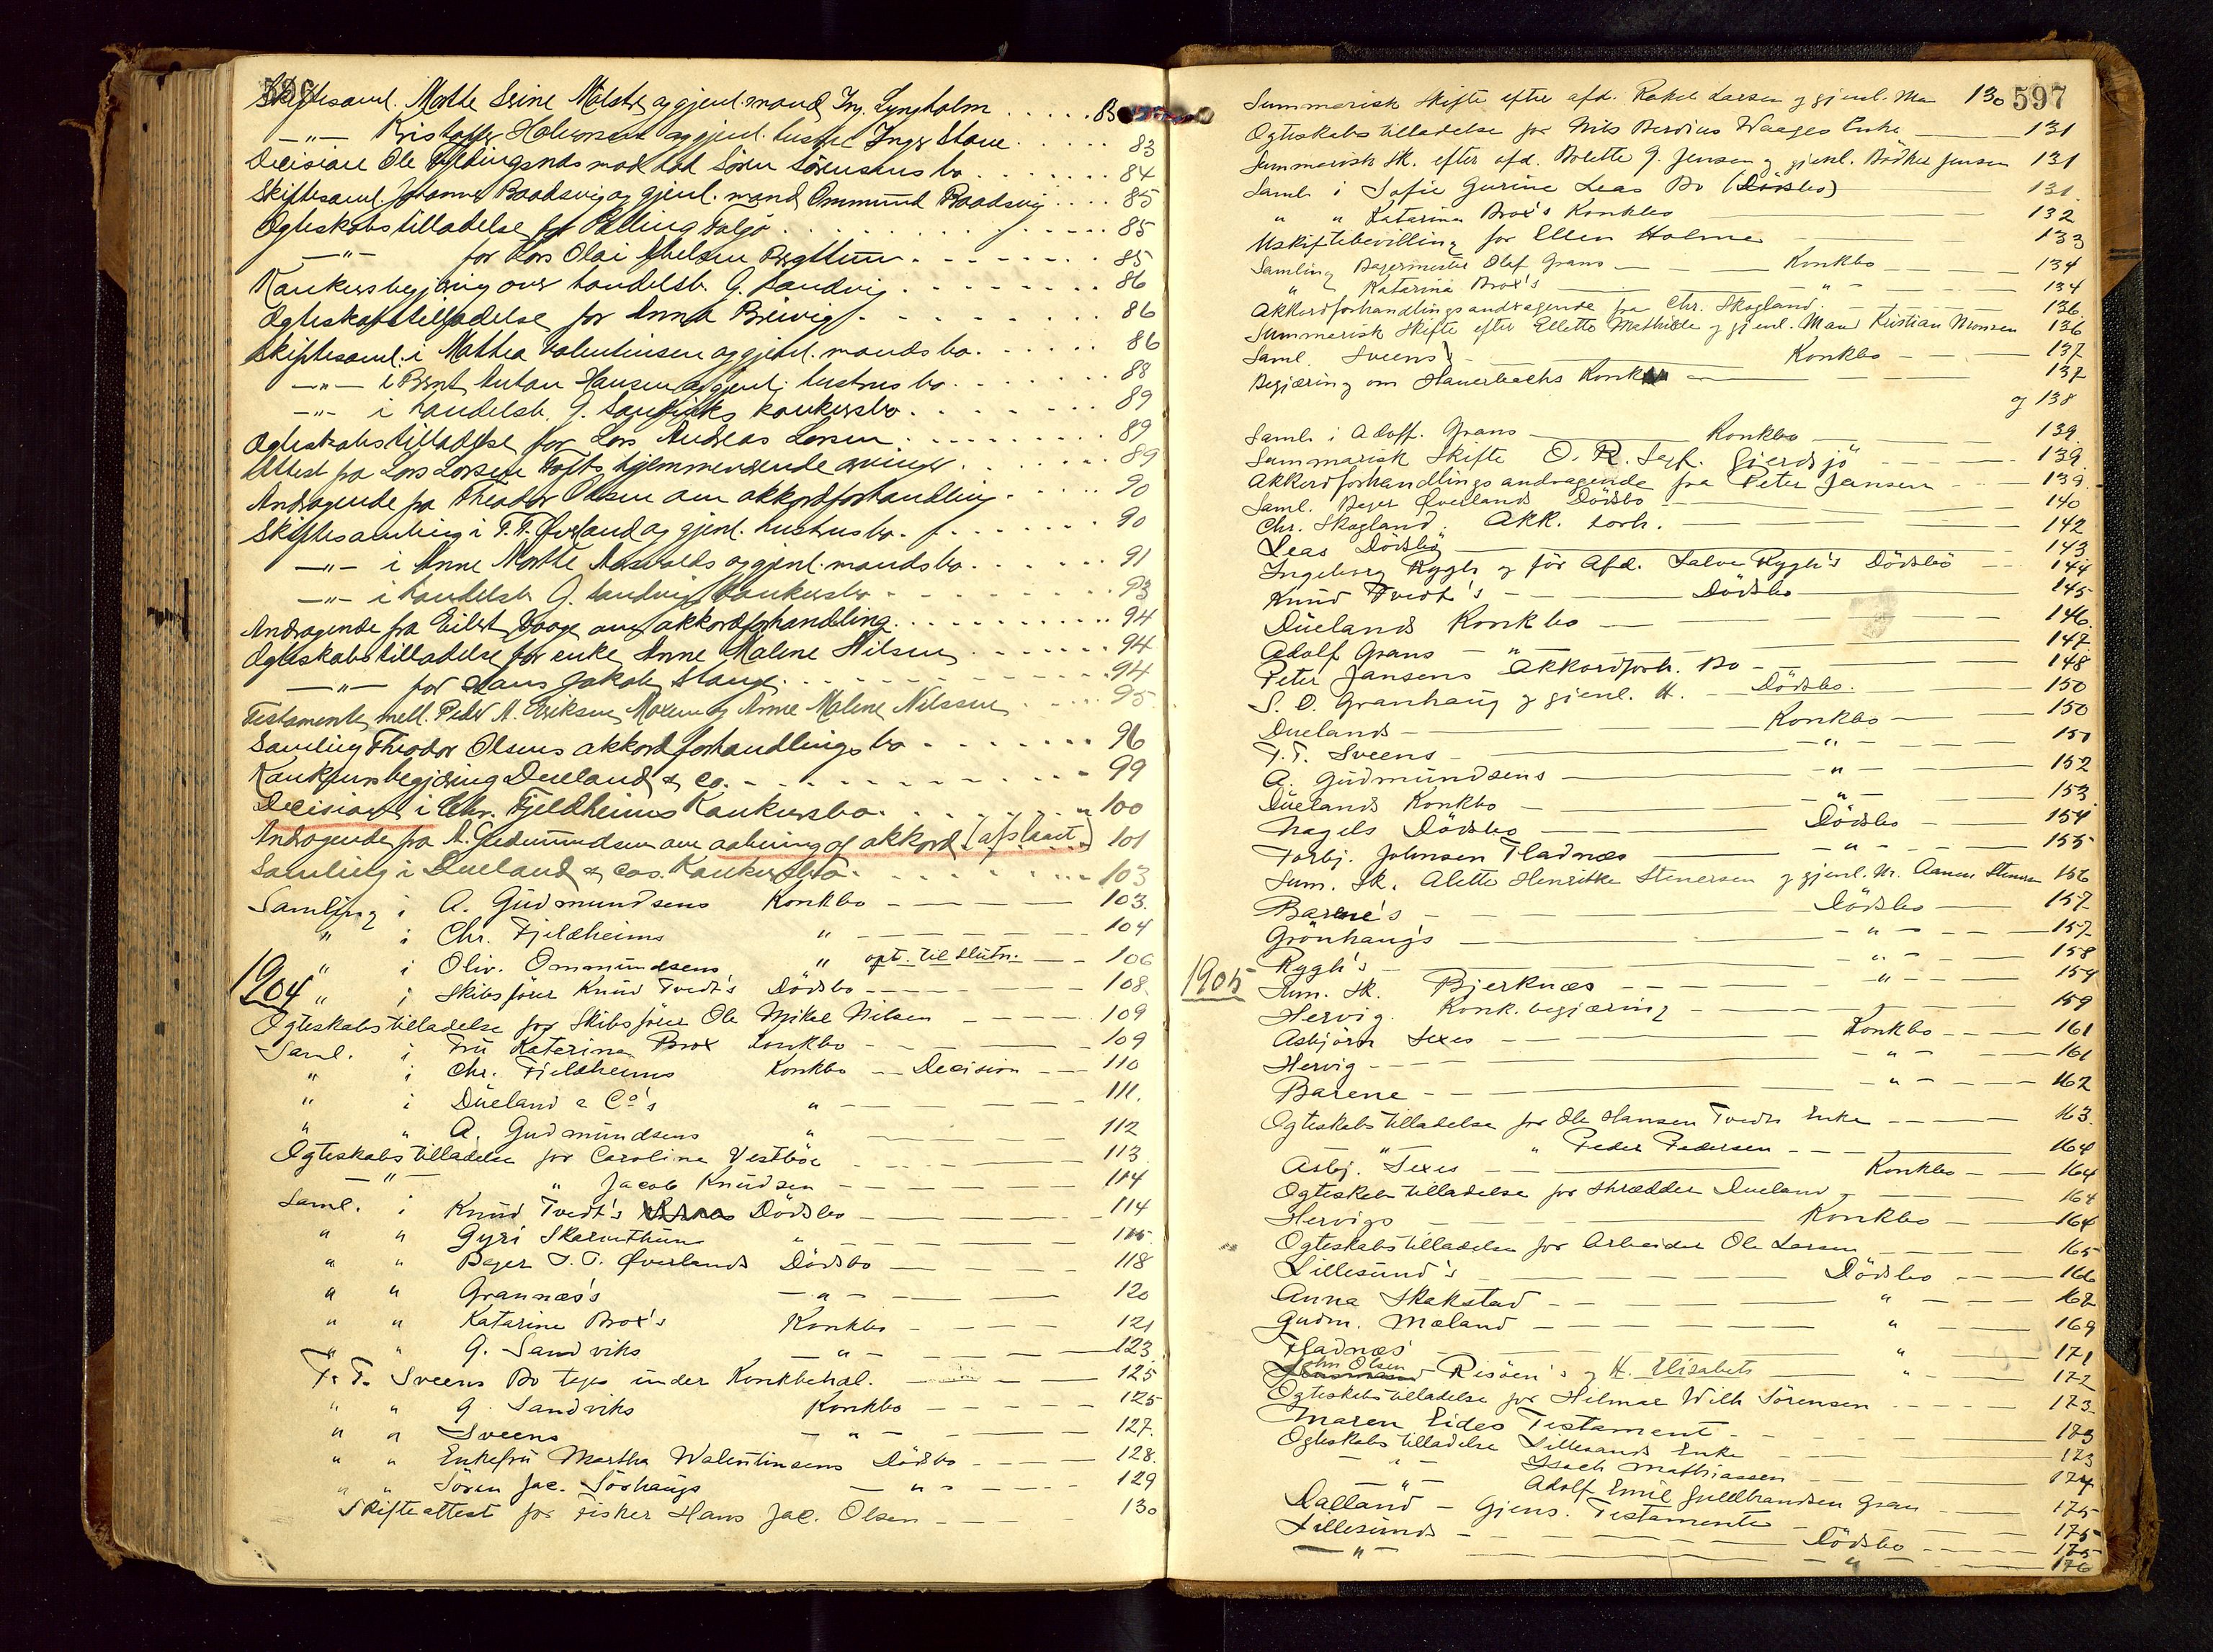 596
Skiftesaml. Marthe Serine Mølstre og gjenl. mand Ing. Lyngholm . . . . . 83
—"— Kristoffer Halvorsen og gjenl. hustru Inger Stave . . . . . 83
Decision Ole mod Søren Sörensens bo . . . . . . . 84
Skiftesaml. Johanne Raadsvig og gjenl. mand Ommund Raadsvig . . . . 85
Ogteskabstilladelse for Falgjø . . . . . . . 85
—"— for Lars Olai . . . . . . . 85
Konkursbegjæring over handelsb. G. Sandvig . . . . . . . . 86
Ogteskabstilladelse for Anna Breivig . . . . . . . . 86
Skiftesaml. i Mathea Valentinsen og gjenl. mands bo . . . . . . 86
—"— i Bernt Anton Hansen og gjenl. hustrus bo . . . . . . 88
—"— i handelsb. G. Sandviks konkursbo . . . . . . . 89
Ogteskabstilladelse for Lars Andreas Larsen . . . . . . . . 89
Attest fra Lars Larsen Tofts hjemmeværende arvinger . . . . . . 89
Andragende fra Theodor Olsen om akkordforhandling . . . . 90
Skiftesamling i T. T. Øverland og gjenl. hustrus bo . . . . . . 90
—"— i Anne Marthe Aasvolds og gjenl. mands bo . . . . . . 91
—"— i handelsb. G. Sandvigs konkursbo . . . . . . . 93
Andragende fra Eilert Vaage om akkordforhandling . . . . . . . . 94
Ogteskabstilladelse for enke Anne Malene Nilsen . . . . . . 94
—"— for Hans Jakob Stange . . . . . . . . . 94
Testamente mell. Peder A. Eriksen Moxen og Anne Malene Nilssen . . . . 95
Samling Theodor Olsens akkordforhandlingsbo . . . . . . . . 96
Konkursbegjæring Dueland & Co. . . . . . . . . . . 99
Decision i Chr. Fjeldheims Konkursbo . . . . . . . . . 100
Andragende fra A. Gudmundsen om aabning af akkord (afslaaet) 101
Samling i Dueland & Cos. Konkursbo . . . . . . . . . 103
Samling i A. Gudmundsens Konkbo — — — — 103.
" i Chr. Fjeldheims " — — — — 104
" i Oliv. Ommundsens " opt. til slutn. — — 106
1904 " i Skibsförer Knud Tvedt's Dödsbo — — — 108.
Ogteskabstilladelse for Skibsförer Ole Mikal Nilsen — — — 109
Saml. i Fru Katerina Brox Konkbo — — — 109
" i Chr. Fjeldheims Konkbo — Decision — — 110
" i Düeland & Co's " — — — — 111.
" " A. Gudmundsens " — — — 112
Ogteskabstilladelse for Caroline Vestböe — — — — 113
—"— " Jacob Knudsen — — — — 114
Saml. i Knud Tvedt's Dödsbo — — — — 114
" " Gyri Skarnthun " — — — — 115.
" " Bager T. T. Øverlands Dödsbo — — — — 118
" " Grannæs's — " — — — — 120
" " Katarine Brox's Konkbo — — — — 121
" " G. Sandviks — " — — — 123
T. T. Sveens Bo toges under Konkbehdl. — — — 125
" " G. Sandviks Konkbo — — — — 125
" " Sveens — " — — — — 127.
" " Enkefru Martha Walentinsens Dödsbo — — — 128.
" " Sören Jac. Sörhaugs — " — — — — 129
Skifteattest for Fisker Hans Jac. Olsen — — — — 130
597
Summarisk Skifte efter afd. Rakel Larsen og gjenl. Man 130
Ogteskabstilladelse for Nils Berdius Waages Enke — — 131
Summarisk Sk. efter afd. Bolette G. Jensen og gjenl. Bödker Jensen 131
Saml. i Sofie Gurine Leas Bo (Dödsbo) — — 131.
" " Katarina Brox's Konkbo — — 132
Uskiftebevilling for Ellen Holme — — 133
Samling Bagermester Olaf Grans — — Konkbo — — 134
" Katarina Brox's — — " — — 134
Akkordforhandlingsandragende fra Chr. Skogland. — — 136.
Summarisk Skifte efter Ellette Mathilde og gjenl. Mand Kristian Monsen 136
Saml. Sveens — — Konkbo — — 137
Begjæring om Hauerbachs Konkbo — — 137
og 138
Saml. i Adolf. Grans — Konkbo — — 139.
Summarisk Skifte O. R. Gjerdsjö — — 139.
Akkordforhandlingsandragende fra Peter Jansen — — 139.
Saml. Bager Øverlands Dödsbo — — 140
Chr. Skogland. Akk. forh. — — 142
Leas Dödsbo — — 143.
Ingeborg Rygh og för Afd. Salve Rygh's Dödsbo — — 144
Knud Tvedt's — — Dödsbo — — 145
Düelands Konkbo — — — 146.
Adolf Grans — " — — 147.
Peter Jansens Akkordforh. Bo — — 148
S. O. Granhaug og gjenl. H. — Dödsbo. — — 150
Duelands — — Konkbo — — 150
T. T. Sveens — — " — — 151
A. Gudmundsens — — " — — 152
Düelands Konkbo — — " — — 153
Nagels Dödsbo — — Dödsbo — — 154
Torbj. Johnsen Fladnæs — — " — — 155
Sum. Sk. Alette Henrikke Stenersen og gjenl. M. Stenersen 156
Barene's — — Dödsbo — — 157
Grönhaug's — — " — — 157.
Rygh's — — " — — 158
1905 Sum. Sk. Bjerknæs — — " — — 159
Hervig. Konk. begjæring — — 159
Asbjörn Sexes — — Konkbo — — 161
Hervig — — " — — 161
Barene — — " — — 162
Ogteskabstilladelse for Ole Hansen Tvedts Enke — — 163.
— " — " Peder Pedersen — — 164
Asbj. Sexes — — Konkbo — — 164
Ogteskabstilladelse for Skrædder Dueland — — 164
Hervigs — — Konkbo — — 164
Ogteskabstilladelse for Arbeider Ole Larsen — — 165
Lillesund's — — Dödsbo — — 166
Anna Skakstad — — " — — 168
Gudm. Mæland — — " — — 169
Fladnæs' — — " — — 171
John Olsen Risöen's og H. Elisabets — — " — — 172
Ogteskabstilladelse for Hilmar Wilh Sörensen — — 173.
Maren Eides Testament — — 173
Ogteskabstilladelse Lillesunds Enke — — 173
— " — Isach Mathiassen — — 174
— " — Adolf Emil Guldbrandsen Gran — — 175
Dalland — Gjens. Testamente — — 175
Lillesunds — — Dödsbo — — 175
— " — — " — — 176